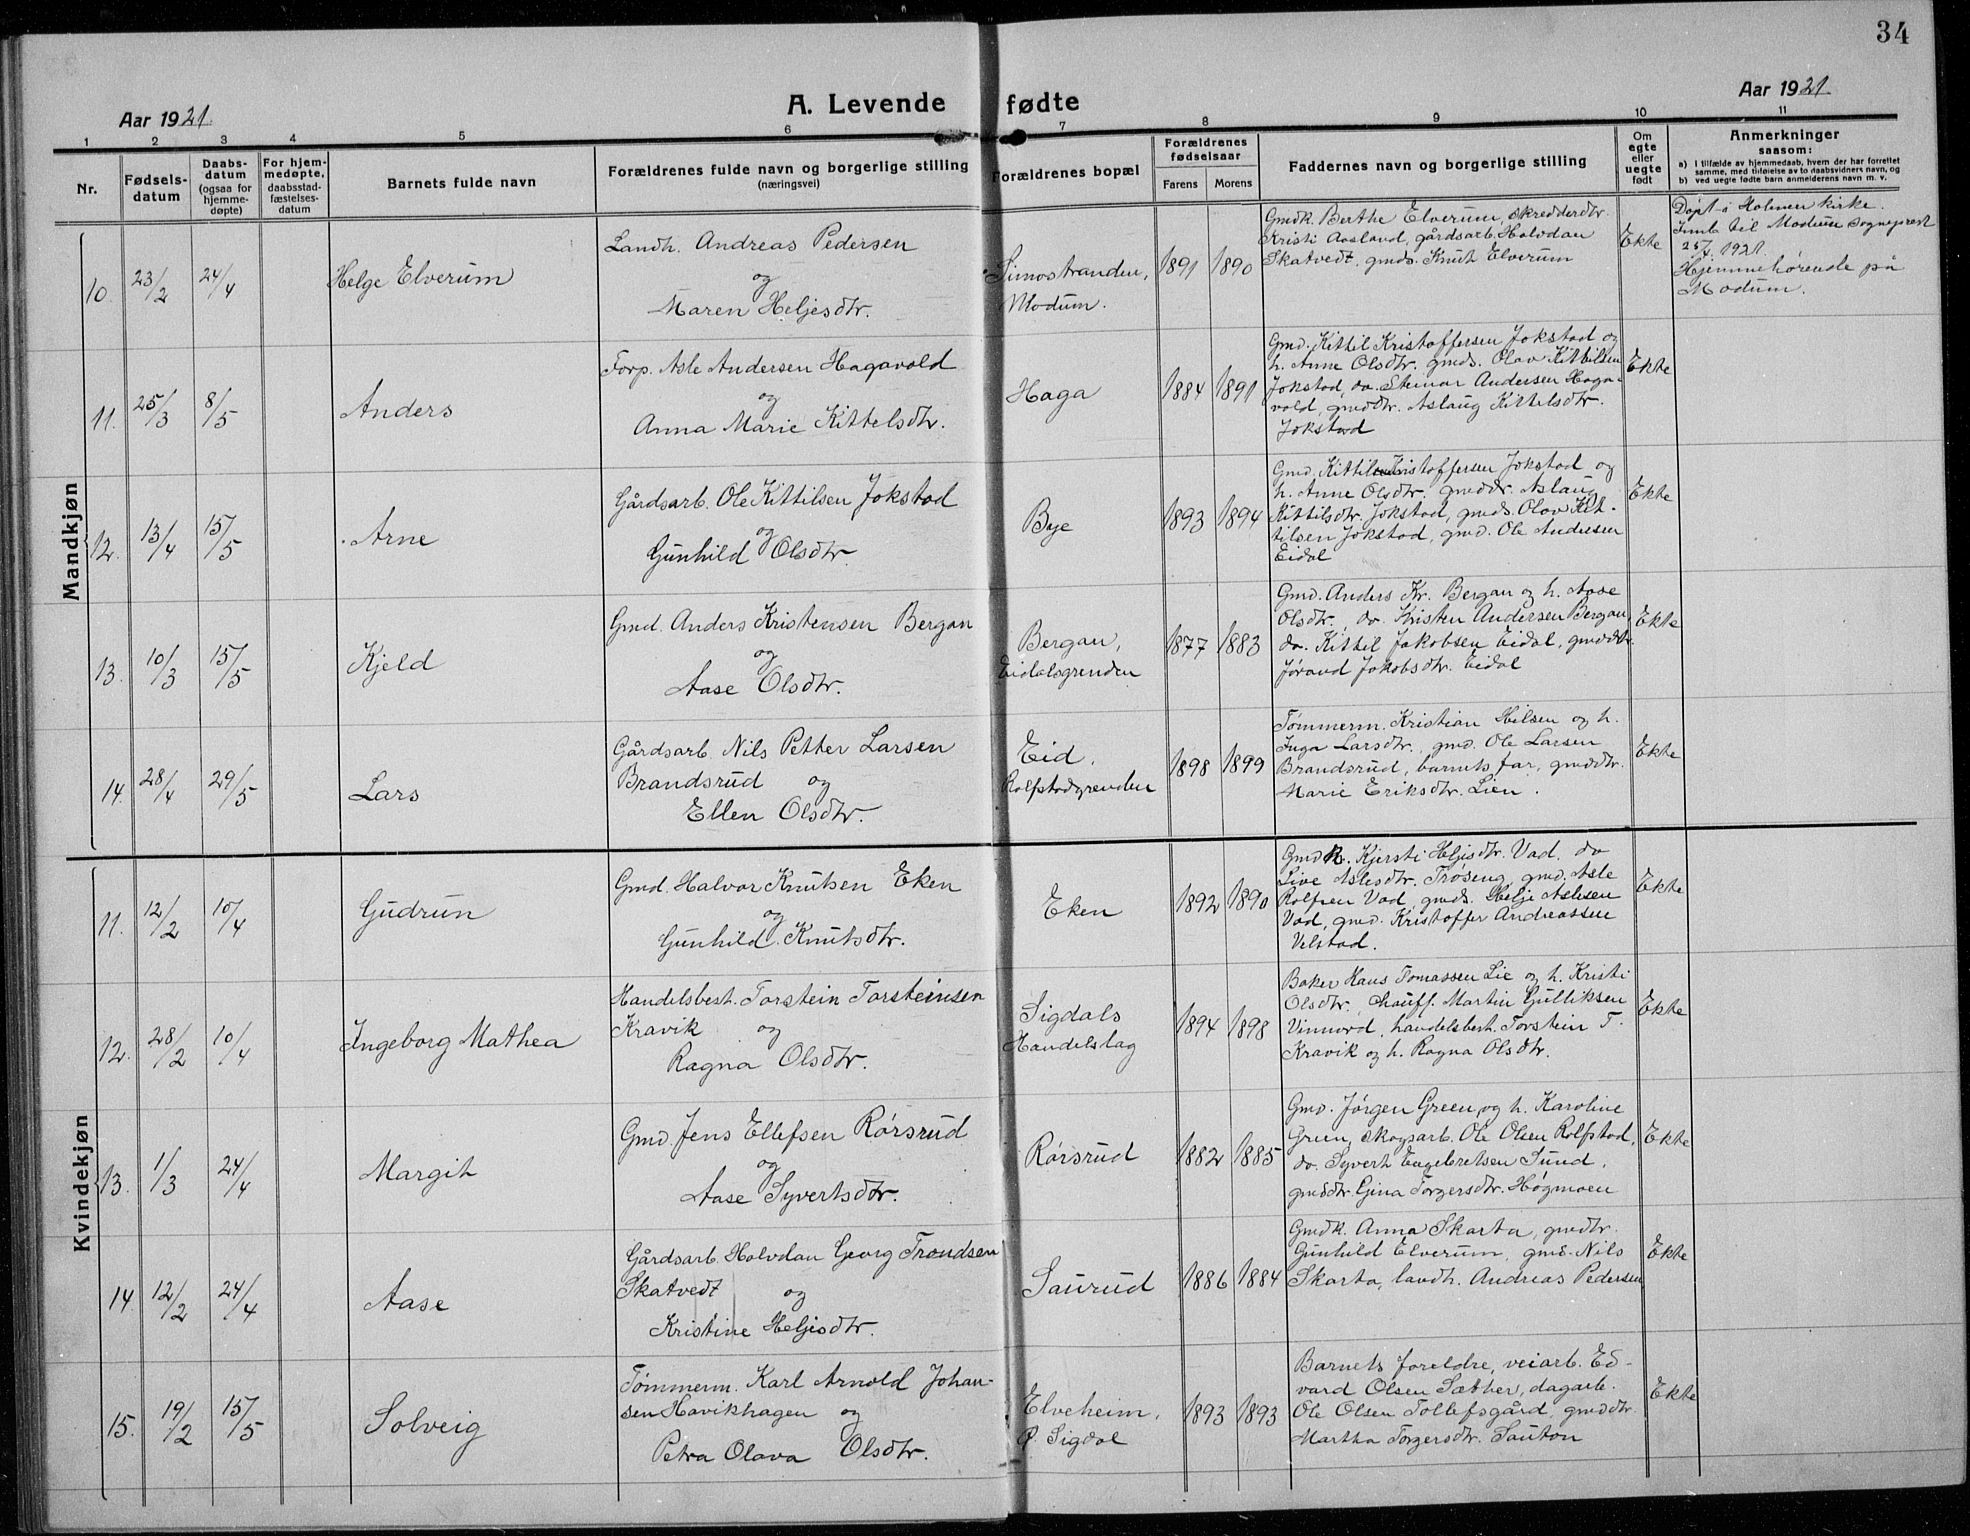 34
A. Levende fødte
Aar 1921.
Aar 1921.
1 2 3 4 5 6 7 8 9 10 11
Nr.
Fødsels-
datum
Daabs-
datum
(ogsaa for
hjemme-
døpte)
For hjem-
medøpte,
daabsstad-
fæstelses-
datum
Barnets fulde navn
Forældrenes fulde navn og borgerlige stilling
(næringsvei)
Forældrenes bopæl
Forældrenes
fødselsaar
Farens Morens
Faddernes navn og borgerlige stilling
Om
egte
eller
uegte
født
Anmerkninger
saasom:
a) I tilfælde av hjemmedaab, hvem der har forrettet
samme, med tilføielse av to daabsvidners navn, og
b) ved uegte fødte barn anmelderens navn m. v.
Mandkjøn
10. 23/2 24/4 Helge Elverum
Landh. Andreas Pedersen
og
Maren Heljesdtr.
Simostranden,
Modum.
1891 1890
Gmdk. Berthe Elverum, skredderdtr.
Kristi Aasland, gårdsarb. Halvdan
Skatvedt, gmds. Knut Elverum
Ekte
Døpt i Holmen kirke.
Innb. til Modum sogneprest
25/7. 1921.
Hjemmehørende på
Modum.
11. 25/3 8/5 Anders
Forp. Asle Andersen Hagavold
og
Anna Marie Kittelsdtr.
Haga
1884 1891
Gmd. Kittil Kristoffersen Jokstad og
h. Anne Olsdtr. gmds. Olav Kittilsen
Jokstad, do. Steinar Andersen Haga-
vold, gmddtr. Aslaug Kittelsdtr.
Jokstad
Ekte
12. 13/4 15/5 Arne
Gårdsarb. Ole Kittilsen Jokstad
og
Gunhild Olsdtr.
Bye
1893 1894
Gmd. Kittil Kristoffersen Jokstad og
h. Anne Olsdtr. gmddtr. Aslaug
Kittilsdtr. Jokstad, gmds. Olav Kit-
tilsen Jokstad, gmd. Ole Andersen
Eidal
Ekte
13. 10/3 15/5 Kjeld
Gmd. Anders Kristensen Bergan
og
Aase Olsdtr.
Bergan,
Eidalsgrenden
1877 1883
Gmd. Anders Kr. Bergan og h. Aase
Olsdtr., do. Kristen Andersen Bergan,
do. Kittil Jakobsen Eidal, gmddtr.
Jørand Jakobsdtr. Eidal
Ekte
14. 28/4 29/5 Lars
Gårdsarb. Nils Petter Larsen
Brandsrud og
Ellen Olsdtr.
Eid,
Rolfstadgrenden
1898 1899
Tømmerm. Kristian Nilsen og h.
Inga Larsdtr., gmd. Ole Larsen
Brandsrud, barnets far, gmddtr.
Marie Eriksdtr. Lien.
Ekte
Kvindekjøn
11. 12/2 10/4 Gudrun
Gmd. Halvor Knutsen Eken
og
Gunhild Knutsdtr.
Eken
1892 1890
Gmdk. Kjersti Heljesdtr. Vad, do
Live Aslesdtr. Trøseng, gmd. Asle
Rolfsen Vad, gmds. Helje Aslesen
Vad, gmd. Kristoffer Andreassen
Velstad.
Ekte
12. 28/2 10/4 Ingeborg Mathea
Handelsbest. Torstein Torsteinsen
Kravik og
Ragna Olsdtr.
Sigdals
Handelslag
1894 1898
Baker Hans Tomassen Lie og h. Kristi
Olsdtr., chauff. Martin Gulliksen
Vinnord, handelsbest. Torstein T.
Kravik og h. Ragna Olsdtr.
Ekte
13. 1/3 24/4 Margit
Gmd. Jens Ellefsen Rørsrud
og
Aase Syvertsdtr.
Rørsrud
1882 1885
Gmd. Jørgen Green og h. Karoline
Green, skogsarb. Ole Olsen Rolfstad,
do. Syvert Engebretsen Sund,
gmddtr. Gina Torgersdtr. Høgmoen
Ekte
14. 12/2 24/4 Aase
Gårdsarb. Halvdan Georg Trondsen
Skatvedt og
Kristine Heljesdtr.
Saurud
1886 1884
Gmdk. Anna Skarta, gmdtr.
Gunhild Elverum, gmds. Nils
Skarta, landh. Andreas Pedersen
Ekte
15. 19/2 15/5 Solveig
Tømmerm. Karl Arnold Johan-
sen Havikhagen og
Petra Olava Olsdtr.
Elveheim,
P. Sigdal
1893 1893
Barnets foreldre, veiarb. Ed-
vard Olsen Sæther, dagarb.
Ole Olsen Tollefsgård, gmddtr.
Martha Torgersdtr. Sauton
Ekte